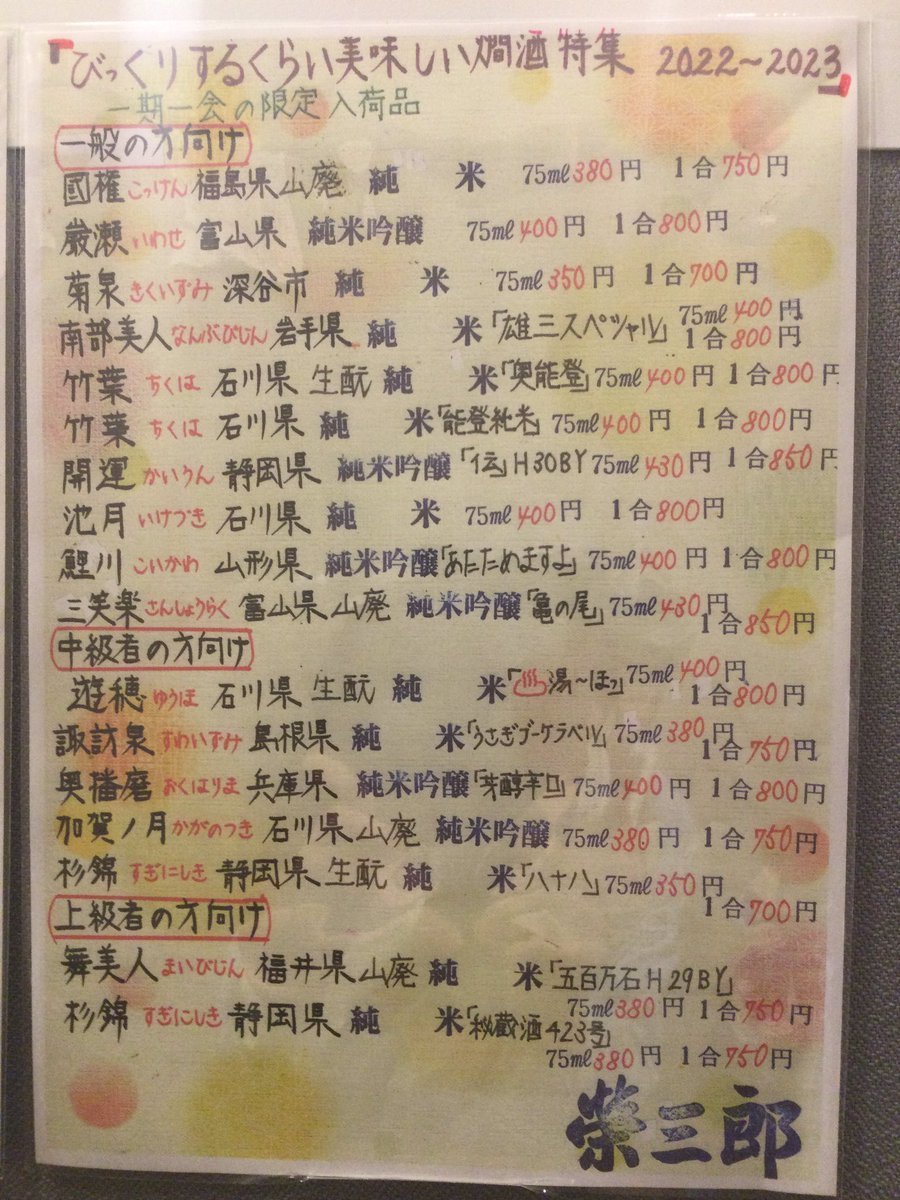 『びっくりするくらい美味しい燗酒特集 2022～2023』
一期一会の限定入荷品
一般の方向け
國権 こっけん 福島県 山廃 純 米 75ml 380円 1合750円
厳瀬 いわせ 富山県 純米吟醸 75ml 400円 1合800円
菊泉 きくいずみ 深谷市 純 米 75ml 350円 1合700円
南部美人 なんぶびじん 岩手県 純 米「雄三スペシャル」75ml 400円 1合800円
竹葉 ちくは 石川県 生酛 純 米「奥能登」75ml 400円 1合800円
竹葉 ちくは 石川県 純 米「能登純米」75ml 400円 1合800円
開運 かいうん 静岡県 純米吟醸「伝」H30BY 75ml 430円 1合850円
池月 いけづき 石川県 純 米 75ml 400円 1合800円
鯉川 こいかわ 山形県 純米吟醸「あたためますよ」75ml 400円 1合800円
三笑楽 さんしょうらく 富山県 山廃 純米吟醸「亀の尾」75ml 430円 1合850円
中級者の方向け
遊穂 ゆうほ 石川県 生酛 純 米「♨湯～ほっ」75ml 400円 1合800円
諏訪泉 すわいずみ 島根県 純 米「うさぎブーケラベル」75ml 380円 1合750円
奥播磨 おくはりま 兵庫県 純米吟醸「芳醇辛口」75ml 400円 1合800円
加賀ノ月 かがのつき 石川県 山廃 純米吟醸 75ml 380円 1合750円
杉錦 すぎにしき 静岡県 生酛 純 米「八十八」75ml 350円 1合700円
上級者の方向け
舞美人 まいびじん 福井県 山廃 純 米「五百万石H29BY」75ml 380円 1合750円
杉錦 すぎにしき 静岡県 純 米「秘蔵酒423号」75ml 380円 1合750円
榮三郎